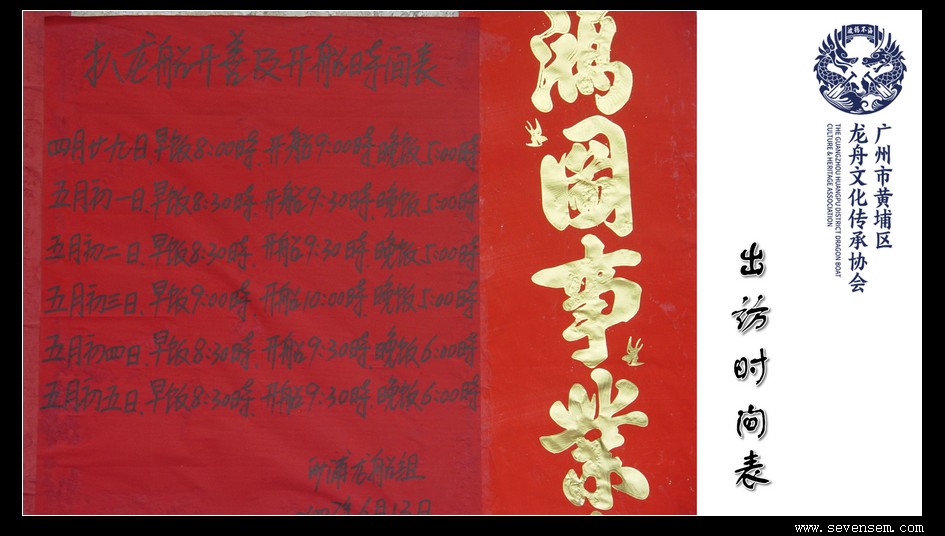 扒龙船开善及开船時间表
四月廿九日早饭8:00時,开船9:00時,晚饭5:00時
五月初一日早饭8:30時,开船9:30時,晚饭5:00時
五月初二日早饭8:30時,开船9:30時,晚饭5:00時
五月初三日早饭9:00時,开船10:00時,晚饭5:00時
五月初四日早饭8:30時,开船9:30時,晚饭6:00時
五月初五日早饭8:30時,开船9:30時,晚饭6:00時
浦龙船组
年6月13日
國事業
海不揚波
广州市黄埔区
龙舟文化传承协会
THE GUANGZHOU HUANGPU DISTRICT DRAGON BOAT
CULTURE & HERITAGE ASSOCIATION
出访时间表
www.sevensem.com